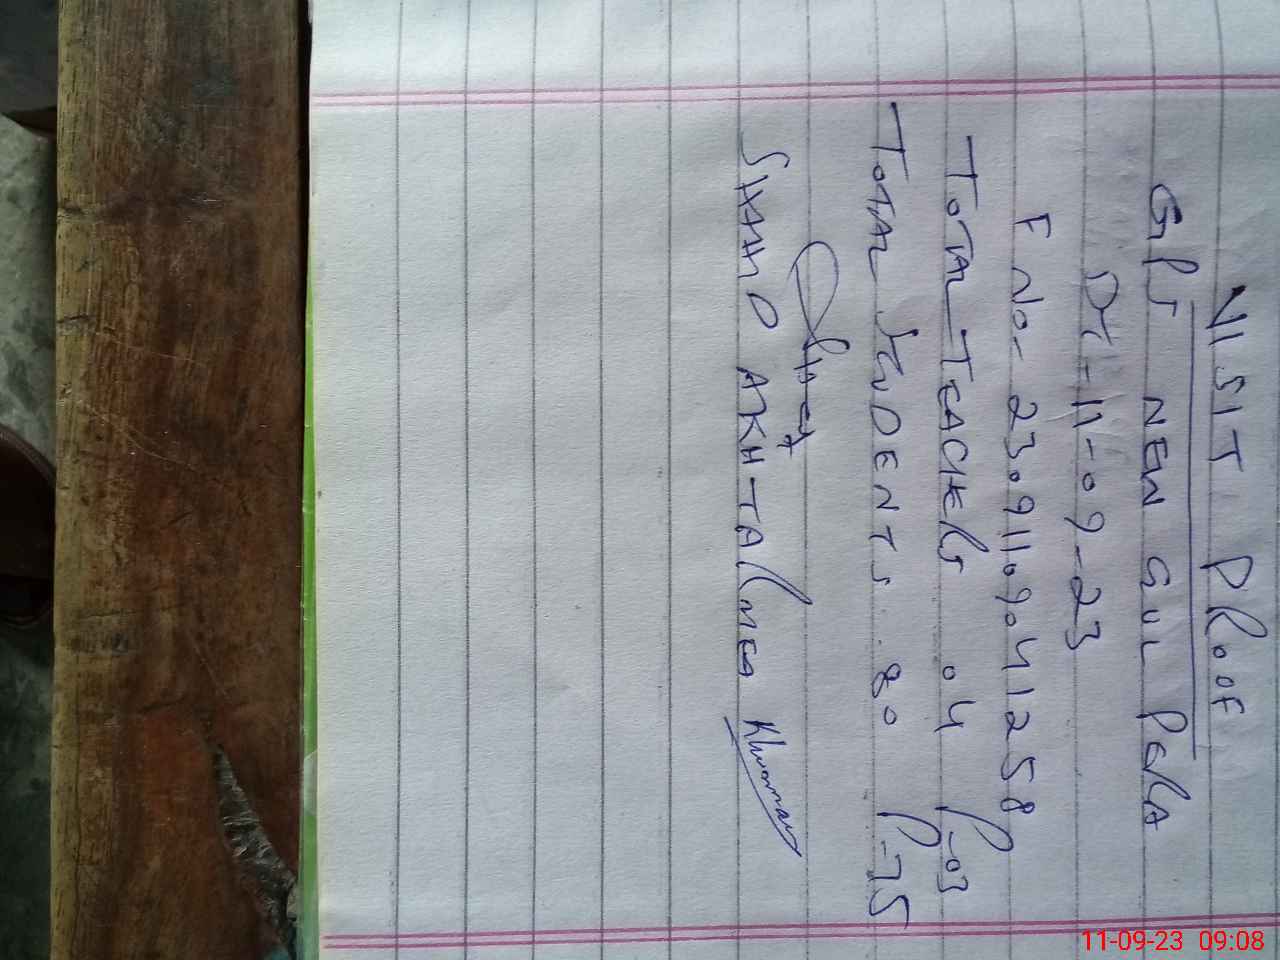 VISIT PROOF
GPS NEW GUL PERA
Dt-11-09-23
F No- 23091109041258
TOTAL TEACHERS 04 P-03
TOTAL STUDENTS. 80 P-75
SHAH O AKHTAR
11-09-23 09:08